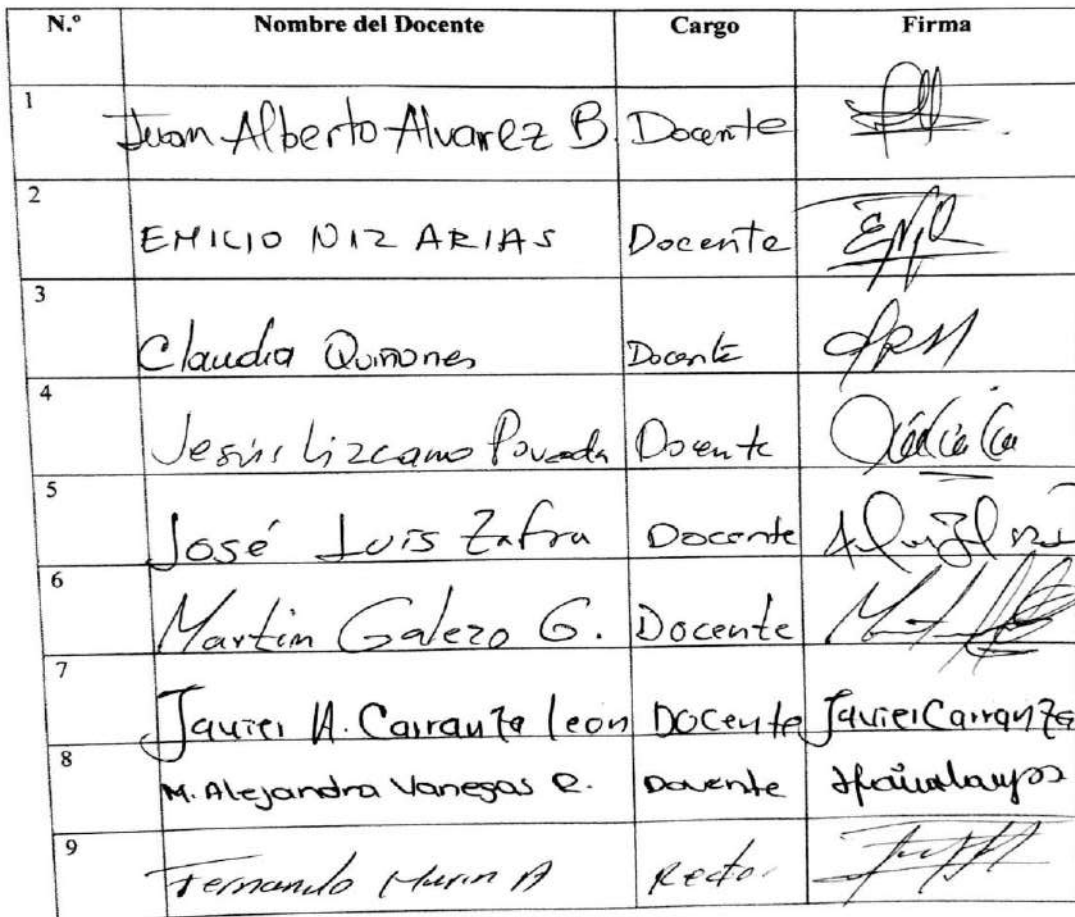 N.º Nombre del Docente Cargo Firma
1 Juan Alberto Alvarez B. Docente
2 EMILIO NIZ ARIAS Docente
3 Claudia Quiñones Docente
4 Jesús Lizcano Poveda Docente
5 José Luis Zafra Docente
6 Martin Galezo G. Docente
7 Javier A. Carranza leon Docente Javier Carranza
8 M. Alejandra Vanegas R. Docente
9 Fernando A Rector